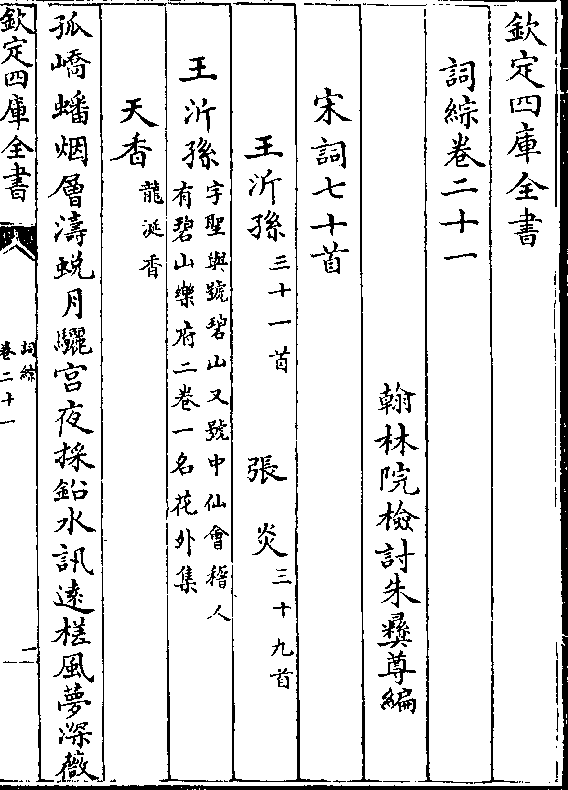 欽定四庫全書
詞綜卷二十一
翰林院檢討朱彞尊編
宋詞七十首
王沂孫三十一首 張炎三十九首
王沂孫字聖與號碧山又號中仙會稽人
有碧山樂府二卷一名花外集
天香龍涎香
孤嶠蟠烟層濤蛻月驪宮夜採鉛水訊遠槎風夢深薇
欽定四庫全書
詞綜
卷二十一
一